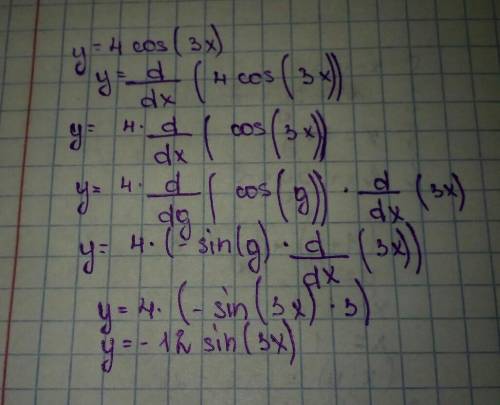 y=4 cos(3x)
y= d/dx (4 cos(3x))
y= 4· d/dx (cos(3x))
y= 4· d/dg (cos(g)) · d/dx (3x)
y= 4·(-sin(g) · d/dx (3x))
y=4·(-sin(3x)·3)
y=-12 sin(3x)